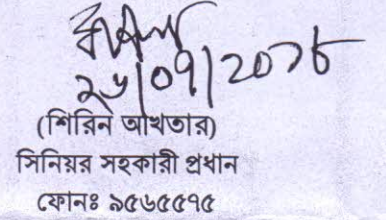 ২৬/০৭/২০১৮
(শিরিন আখতার)
সিনিয়র সহকারী প্রধান
ফোনঃ ৯৫৬৫৫৭৫